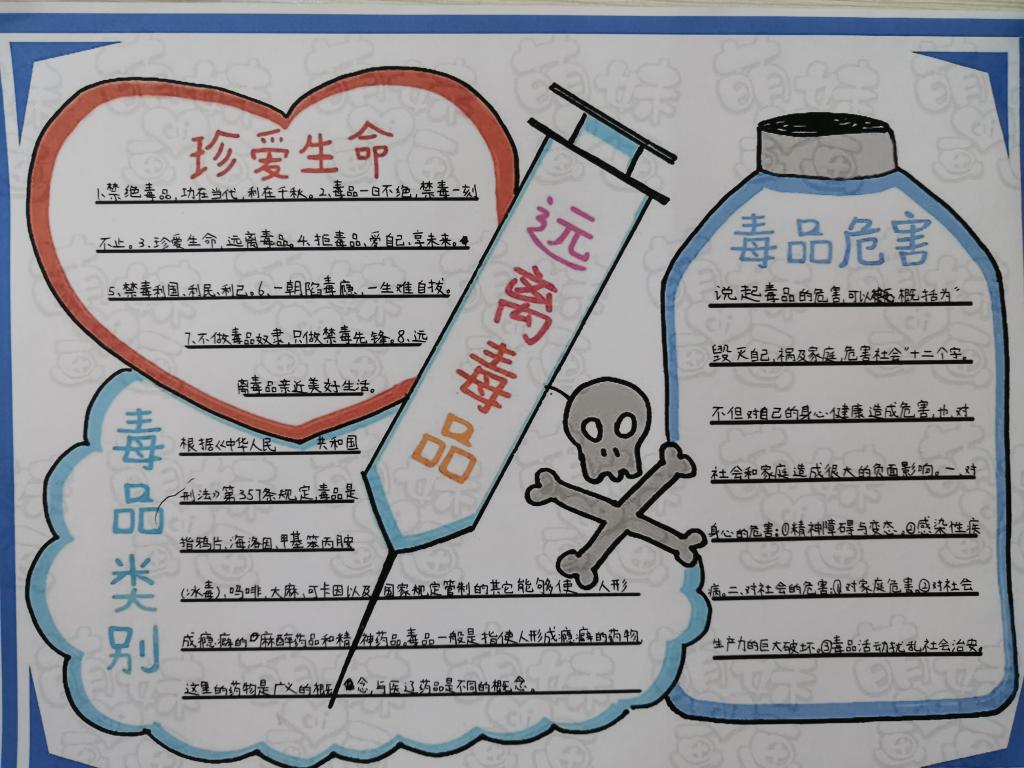 珍爱生命
1.禁绝毒品,功在当代,利在千秋。2.毒品一日不绝,禁毒一刻
不止。3.珍爱生命,远离毒品。4.拒毒品、爱自己、享未来。
5、禁毒利国、利民、利己。6、一朝陷毒瘾,一生难自拔。
7.不做毒品奴隶,只做禁毒先锋。8、远
离毒品亲近美好生活。
远离毒品
毒品类别
根据《中华人民 共和国
刑法》第357条规定,毒品是
指鸦片、海洛因、甲基苯丙胺
(冰毒),吗啡,大麻,可卡因以及国家规定管制的其它能够使 人形
成瘾癖的麻醉药品和精神药品,毒品一般是指使人形成瘾癖的药物,
这里的药物是广义的概念,与医辽药品是不同的概念。
毒品危害
说起毒品的危害,可以概括为"
毁灭自己,祸及家庭,危害社会"十二个字。
不但对自己的身心健康造成危害,也对
社会和家庭造成很大的负面影响。一、对
身心的危害:①精神障碍与变态。②感染性疾
病。二、对社会的危害:①对家庭危害。②对社会
生产力的巨大破坏。③毒品活动扰乱社会治安。
萌妹